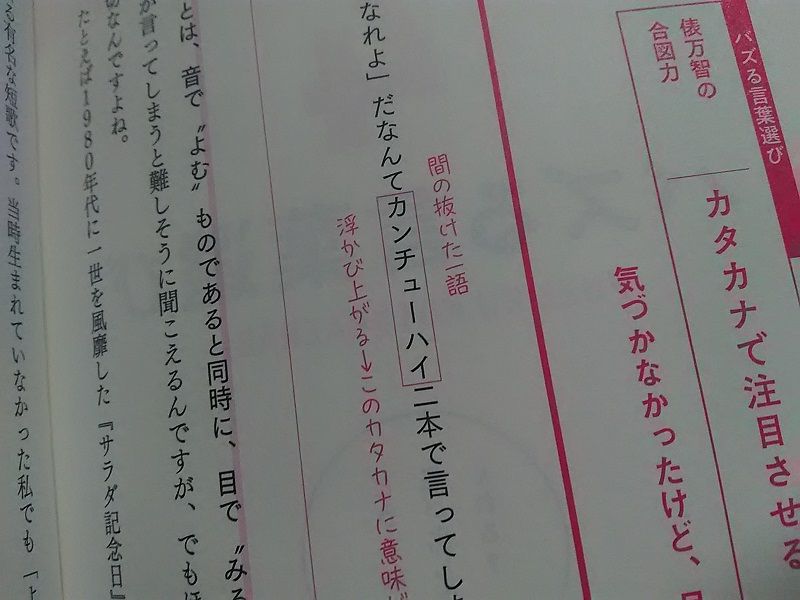 バズる言葉選び
俵万智の
合図力
カタカナで注目させる
気づかなかったけど、
間の抜けた一語
なれよ」だなんてカンチューハイ二本で言ってし
浮かび上がる→このカタカナに意味が
とは、音で〝よむ〟ものであると同時に、目で〝みる
が言ってしまうと難しそうに聞こえるんですが、でも
のなんですよね。
たとえば1980年代に一世を風靡した『サラダ記念日』
も有名な短歌です。当時生まれていなかった私でも「